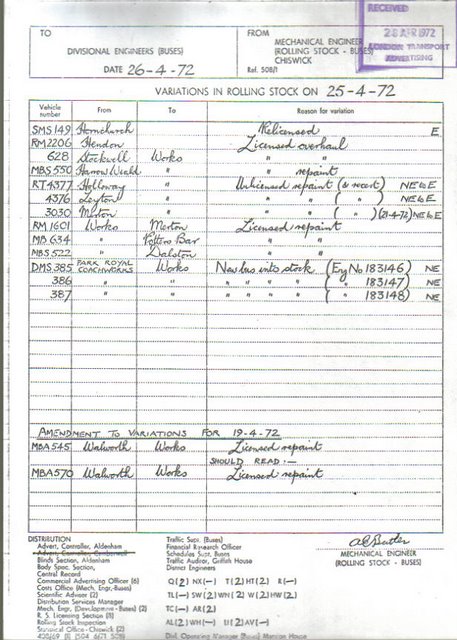 RECEIVED
28 APR 1972
LONDON TRANSPORT
ADVERTISING
TO
DIVISIONAL ENGINEERS (BUSES)
DATE 26-4-72
FROM
MECHANICAL ENGINEER
(ROLLING STOCK - BUSES)
CHISWICK
Ref. 508/1
VARIATIONS IN ROLLING STOCK ON 25-4-72
Vehicle number From To Reason for variation
SMS 149 Hornchurch Relicensed E
RM 2206 Hendon Licensed overhaul
628 Stockwell Works " "
MBS 550 Harrow Weald " " repaint
RT 4377 Holloway " Unlicensed repaint (& recert) NE to E
4376 Leyton " " " ( " ) NE to E
3030 Merton " " " ( " ) (21-4-72) NE to E
RM 1601 Works Merton Licensed repaint
MB 634 " Potters Bar " "
MBS 522 " Dalston " "
DMS 385 PARK ROYAL COACHWORKS Works New bus into stock (Eng No 183146) NE
386 " " " " " " ( " 183147) NE
387 " " " " " " ( " 183148) NE
AMENDMENT TO VARIATIONS FOR 19-4-72
MBA 545 Walworth Works Licensed repaint
SHOULD READ :—
MBA 570 Walworth Works Licensed repaint
DISTRIBUTION
Advert. Controller, Aldenham
Advert. Controller, Camberwell
Blinds Section, Aldenham
Body Spec. Section,
Central Record
Commercial Advertising Officer (6)
Costs Office (Mech. Engr. Buses)
Scientific Adviser (2)
Distribution Services Manager
Mech. Engr. (Development - Buses) (2)
R. S. Licensing Section (8)
Rolling Stock Inspection
Statistical Office - Chiswick (2)
Traffic Supt. (Buses)
Financial Research Officer
Schedules Supt. Buses
Traffic Auditor, Griffith House
District Engineers
Q(2) NX(—) T(2) HT(2) R(—)
TL(—) SW(2) WN(2) W(2) HW(2)
TC(—) AR(2)
AL(2) WH(—) U(2) AV(—)
Dist. Operating Manager (Buses) Mansion House
A C Butler
MECHANICAL ENGINEER
(ROLLING STOCK - BUSES)